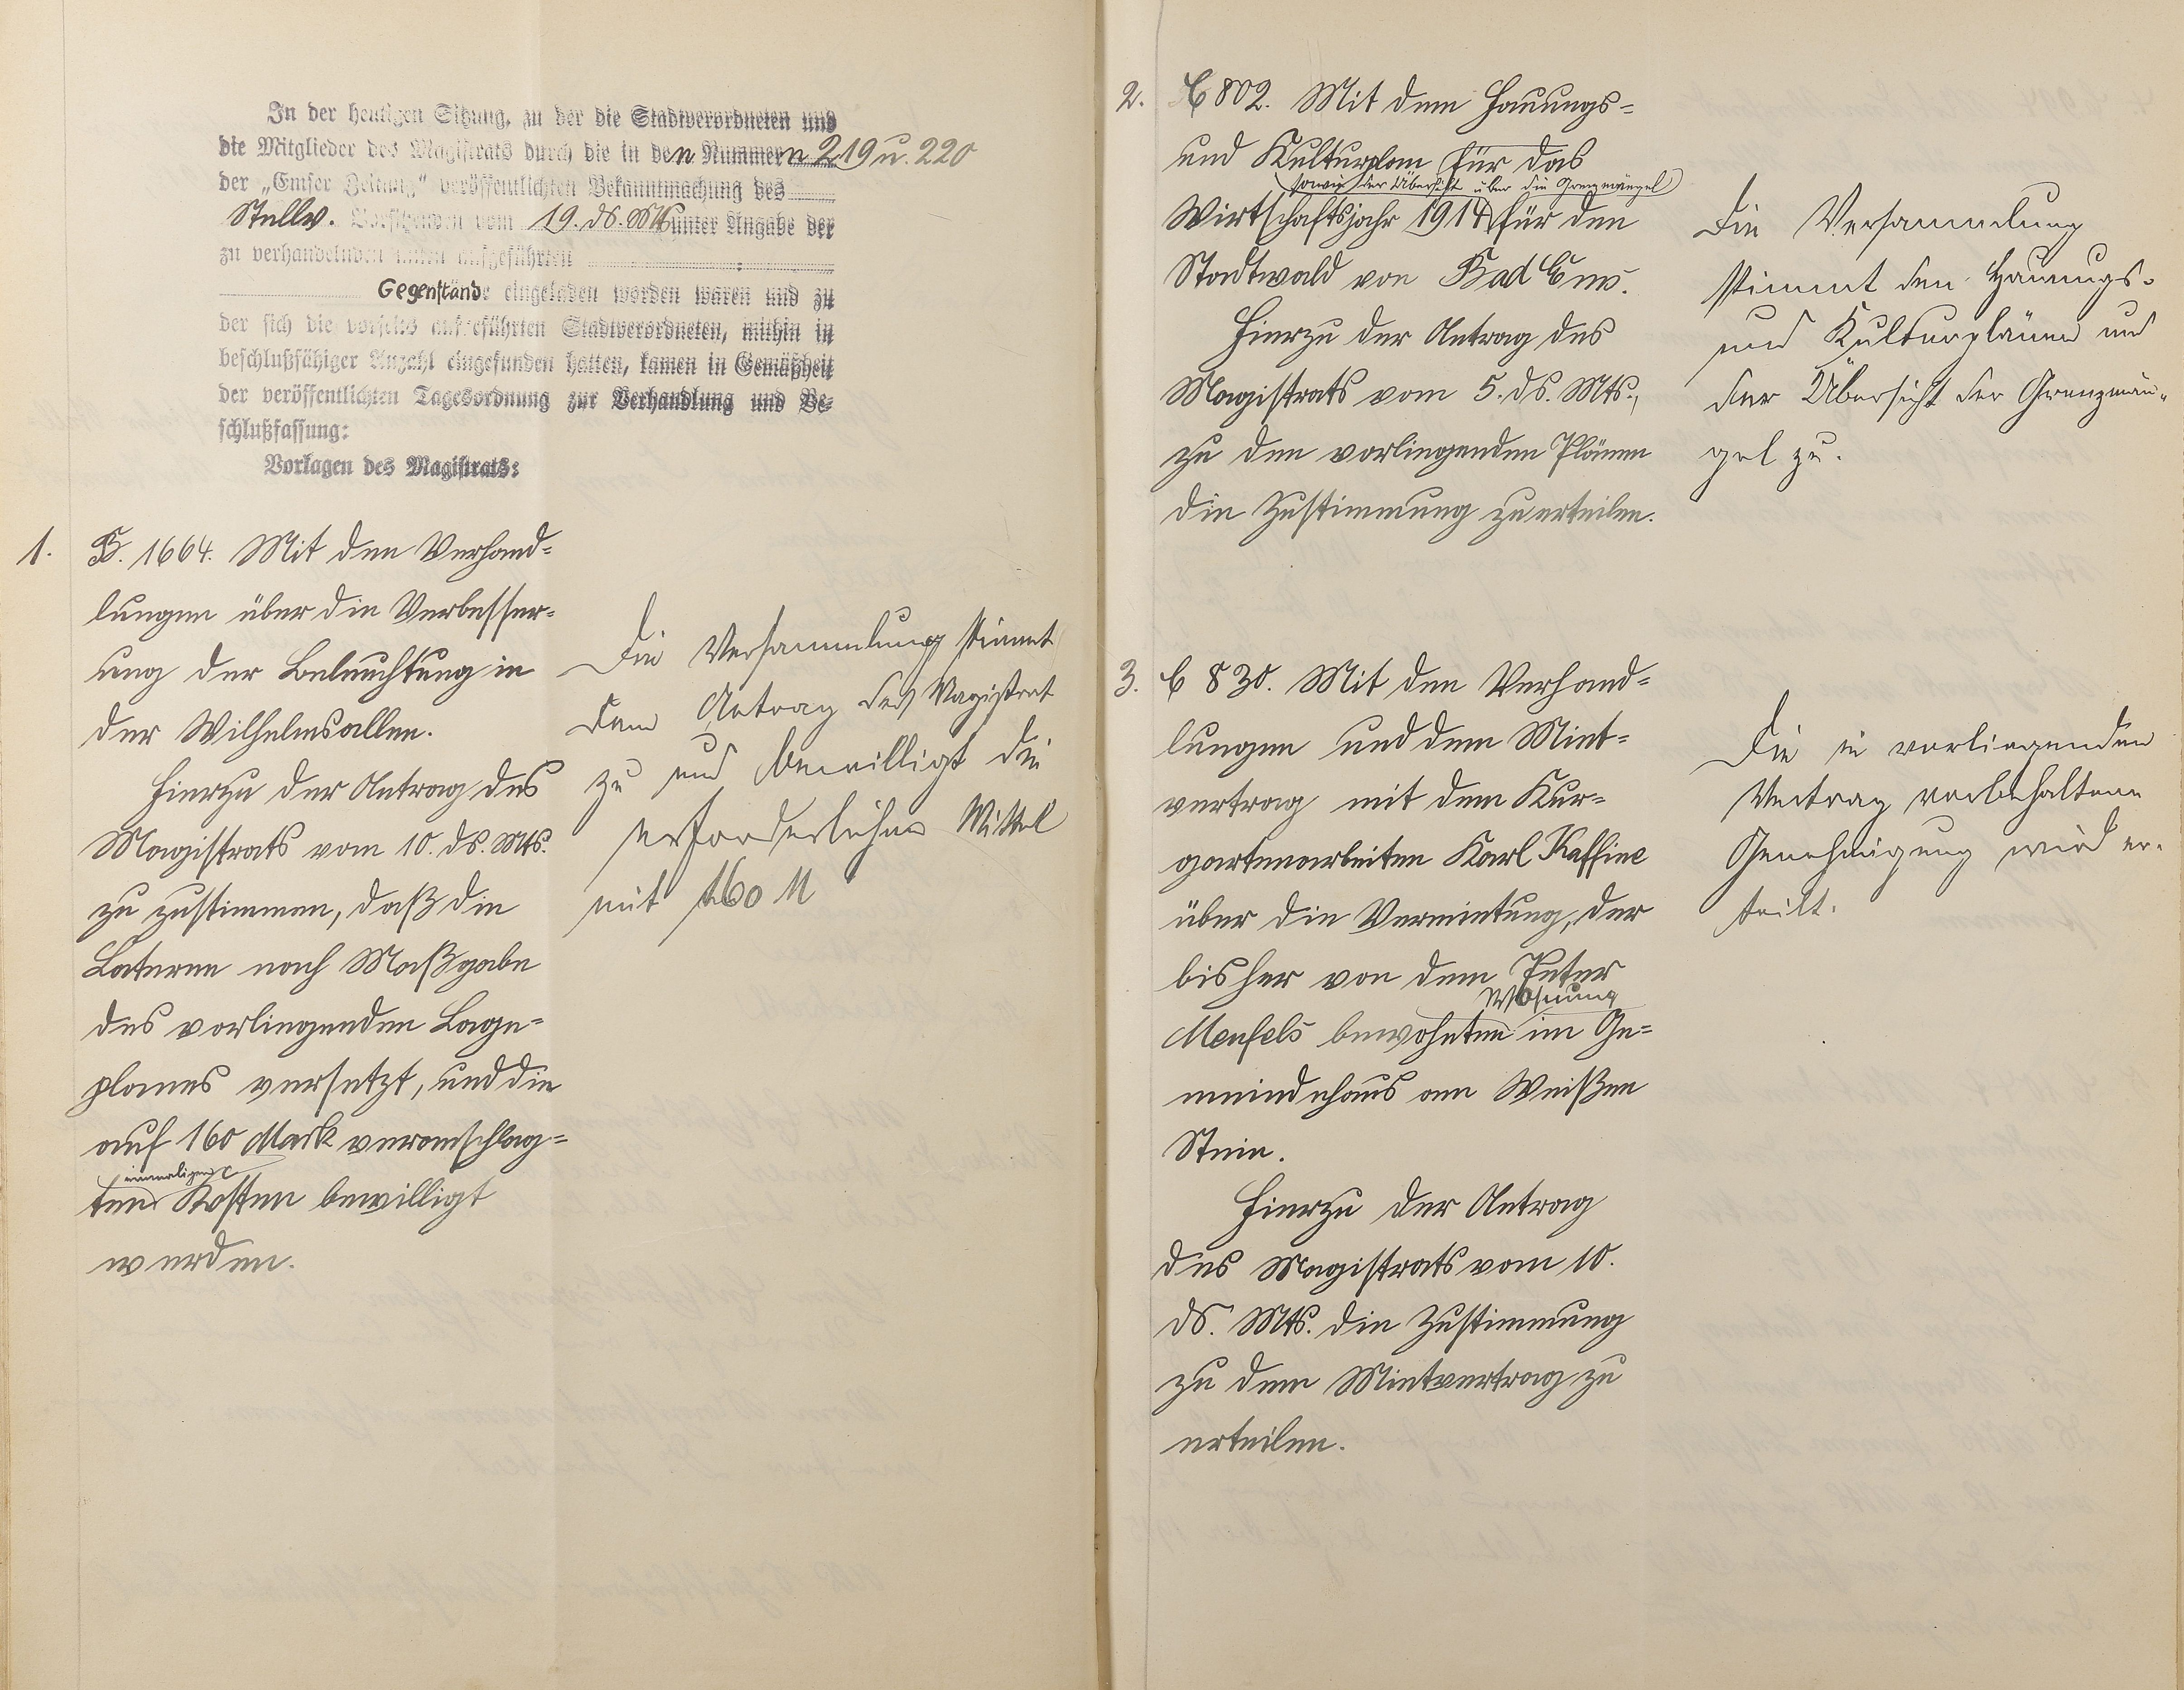 In der heutigen Sitzung, zu der die Stadtverordneten und
die Mitglieder des Magistrats durch die in den Nummern 219 u. 220
der „Emser Zeitung“ veröffentlichten Bekanntmachung des
Stellv. Vorsitzenden vom 19. ds. Mts. unter Angabe der
zu verhandelnden unten aufgeführten
Gegenstände eingeladen worden waren und zu
der sich die vorseits aufgeführten Stadtverordneten, mithin in
beschlußfähiger Anzahl eingefunden hatten, kamen in Gemäßheit
der veröffentlichten Tagesordnung zur Verhandlung und Be-
schlußfassung:
Vorlagen des Magistrats:
1. B. 1664. Mit den Verhand-
lungen über die Verbesser-
ung der Beleuchtung in
der Wilhelmsallee.
Hierzu der Antrag des
Magistrats vom 10. ds. Mts.
zu zustimmen, daß die
Laterne nach Maßgabe
des vorliegenden Lage-
planes versetzt, und die
auf 160 Mark veranschlag-
einmaligen
ten Kosten bewilligt
werden.
Die Versammlung stimmt
dem Antrag des Magistrat
zu und bewilligt die
erforderlichen Mittel
mit 160 M
2. C 802. Mit dem Hauungs-
und Kulturplan für das
sowie der Übersicht über die Grenzmängel
Wirtschaftsjahr 1914 für den
Stadtwald von Bad Ems.
Hierzu der Antrag des
Magistrats vom 5. ds. Mts.,
zu den vorliegenden Plänen
die Zustimmung zu erteilen.
Die Versammlung
stimmt den Hauungs-
und Kulturplänen und
der Übersicht der Grenzmän-
gel zu.
3. C 830. Mit den Verhand-
lungen und dem Miet-
vertrag mit dem Kur-
gartenarbeiten Karl Kaffine
über die Vermietung, der
bisher von dem Peter
Wohnung
Menfels bewohnten im Ge-
meindehaus am Weißen
Stein.
Hierzu der Antrag
des Magistrats vom 10.
ds. Mts. die Zustimmung
zu dem Mietvertrag zu
erteilen.
Die in vorliegenden
Vertrag vorbehaltene
Genehmigung wird er-
teilt.